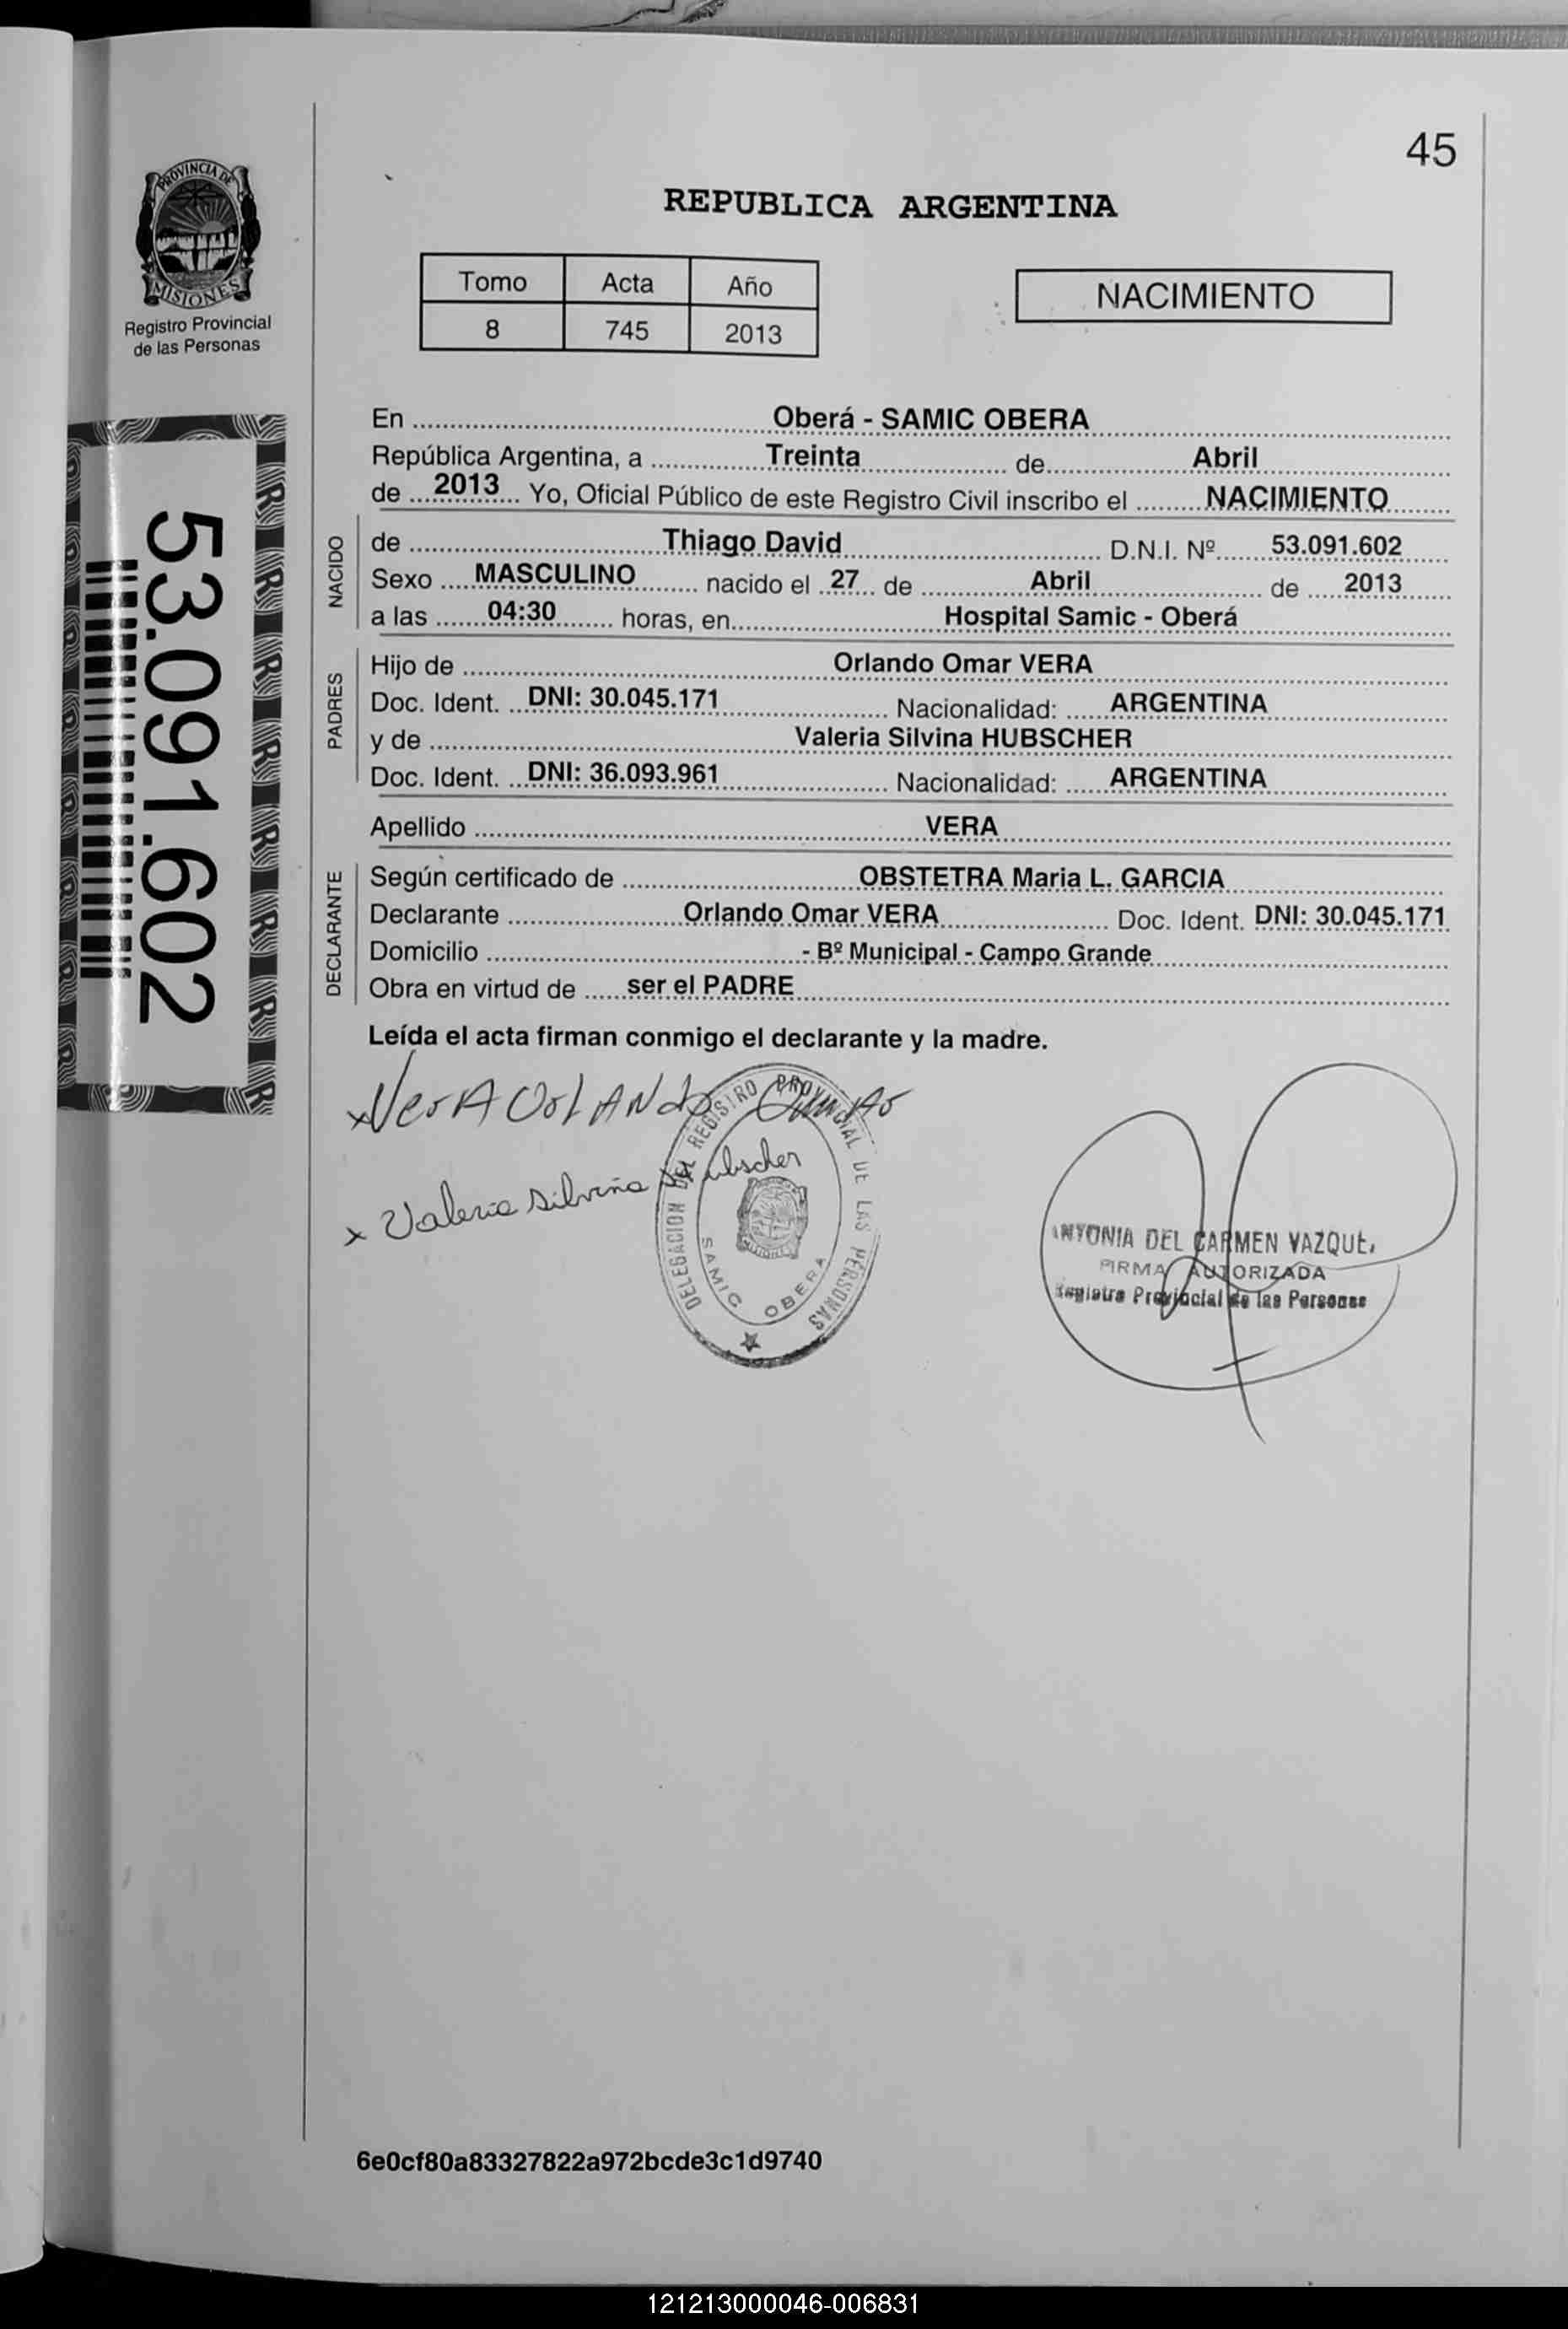 45
PROVINCIA DE
MISIONES
Registro Provincial
de las Personas
REPUBLICA ARGENTINA
Tomo Acta Año
8 745 2013
NACIMIENTO
53.091.602
En Oberá - SAMIC OBERA
República Argentina, a Treinta de Abril
de 2013 Yo, Oficial Público de este Registro Civil inscribo el NACIMIENTO
NACIDO
de Thiago David D.N.I. Nº 53.091.602
Sexo MASCULINO nacido el 27 de Abril de 2013
a las 04:30 horas, en Hospital Samic - Oberá
PADRES
Hijo de Orlando Omar VERA
Doc. Ident. DNI: 30.045.171 Nacionalidad: ARGENTINA
y de Valeria Silvina HUBSCHER
Doc. Ident. DNI: 36.093.961 Nacionalidad: ARGENTINA
Apellido VERA
DECLARANTE
Según certificado de OBSTETRA Maria L. GARCIA
Declarante Orlando Omar VERA Doc. Ident. DNI: 30.045.171
Domicilio - Bº Municipal - Campo Grande
Obra en virtud de ser el PADRE
Leída el acta firman conmigo el declarante y la madre.
x Vera Orlando Omar
x Valeria Silvina Hubscher
DELEGACION DEL REGISTRO PROVINCIAL DE LAS PERSONAS
SAMIC OBERA
DEL CARMEN
FIRMA AUTORIZADA
Provincial de las Personas
6e0cf80a83327822a972bcde3c1d9740
121213000046-006831